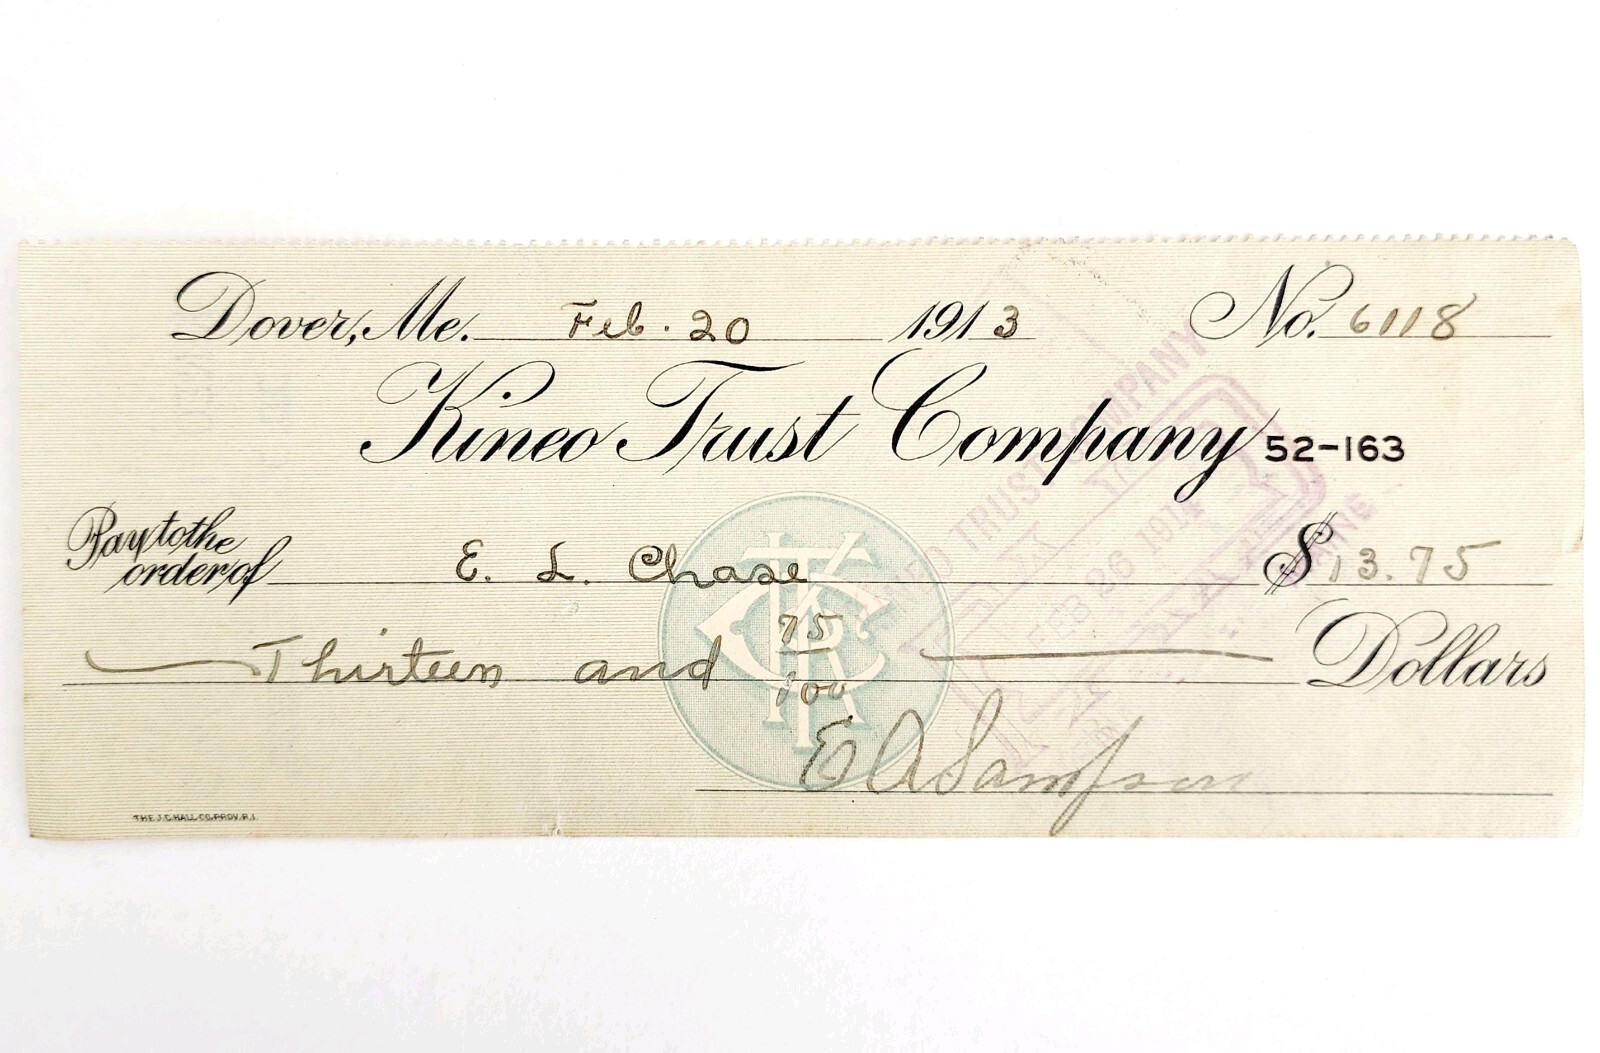 Dover, Me. Feb. 20 1913 No. 6118
Kineo Trust Company 52-163
Pay to the order of E. L. Chase $13.75
Thirteen and 75/100 Dollars
E A Sampson
THE J.C. HALL CO. PROV. R.I.
KTC
KINEO TRUST COMPANY
FEB 26 1914
MAINE